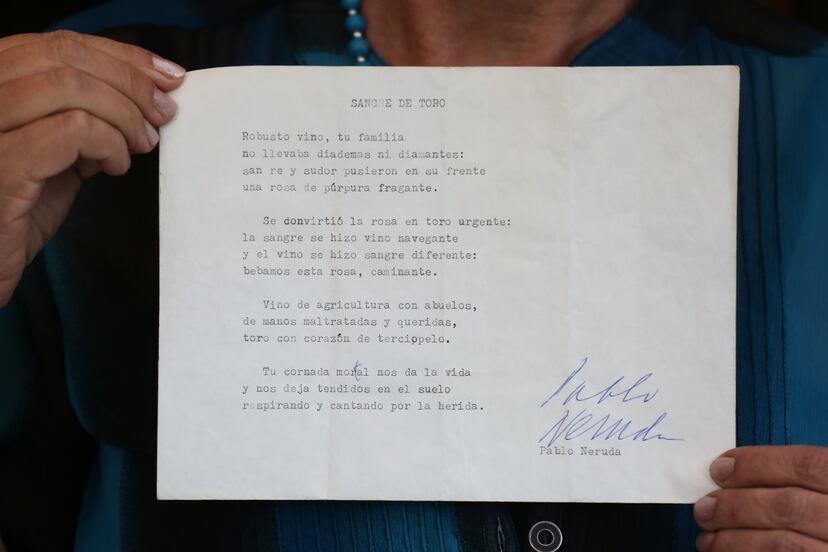 SANGRE DE TORO
Robusto vino, tu familia
no llevaba diademas ni diamantes:
san re y sudor pusieron en su frente
una rosa de púrpura fragante.
Se donvirtió la rosa en toro urgente:
la sangre se hizo vino navegante
y el vino se hizo sangre diferente:
bebamos esta rosa, caminante.
Vino de agricultura con abuelos,
de manos maltratadas y queridas,
toro con corazón de terciopelo.
Tu cornada mortal nos da la vida
y nos deja tendidos en el suelo
respirando y cantando por la herida.
Pablo
Neruda
Pablo Neruda